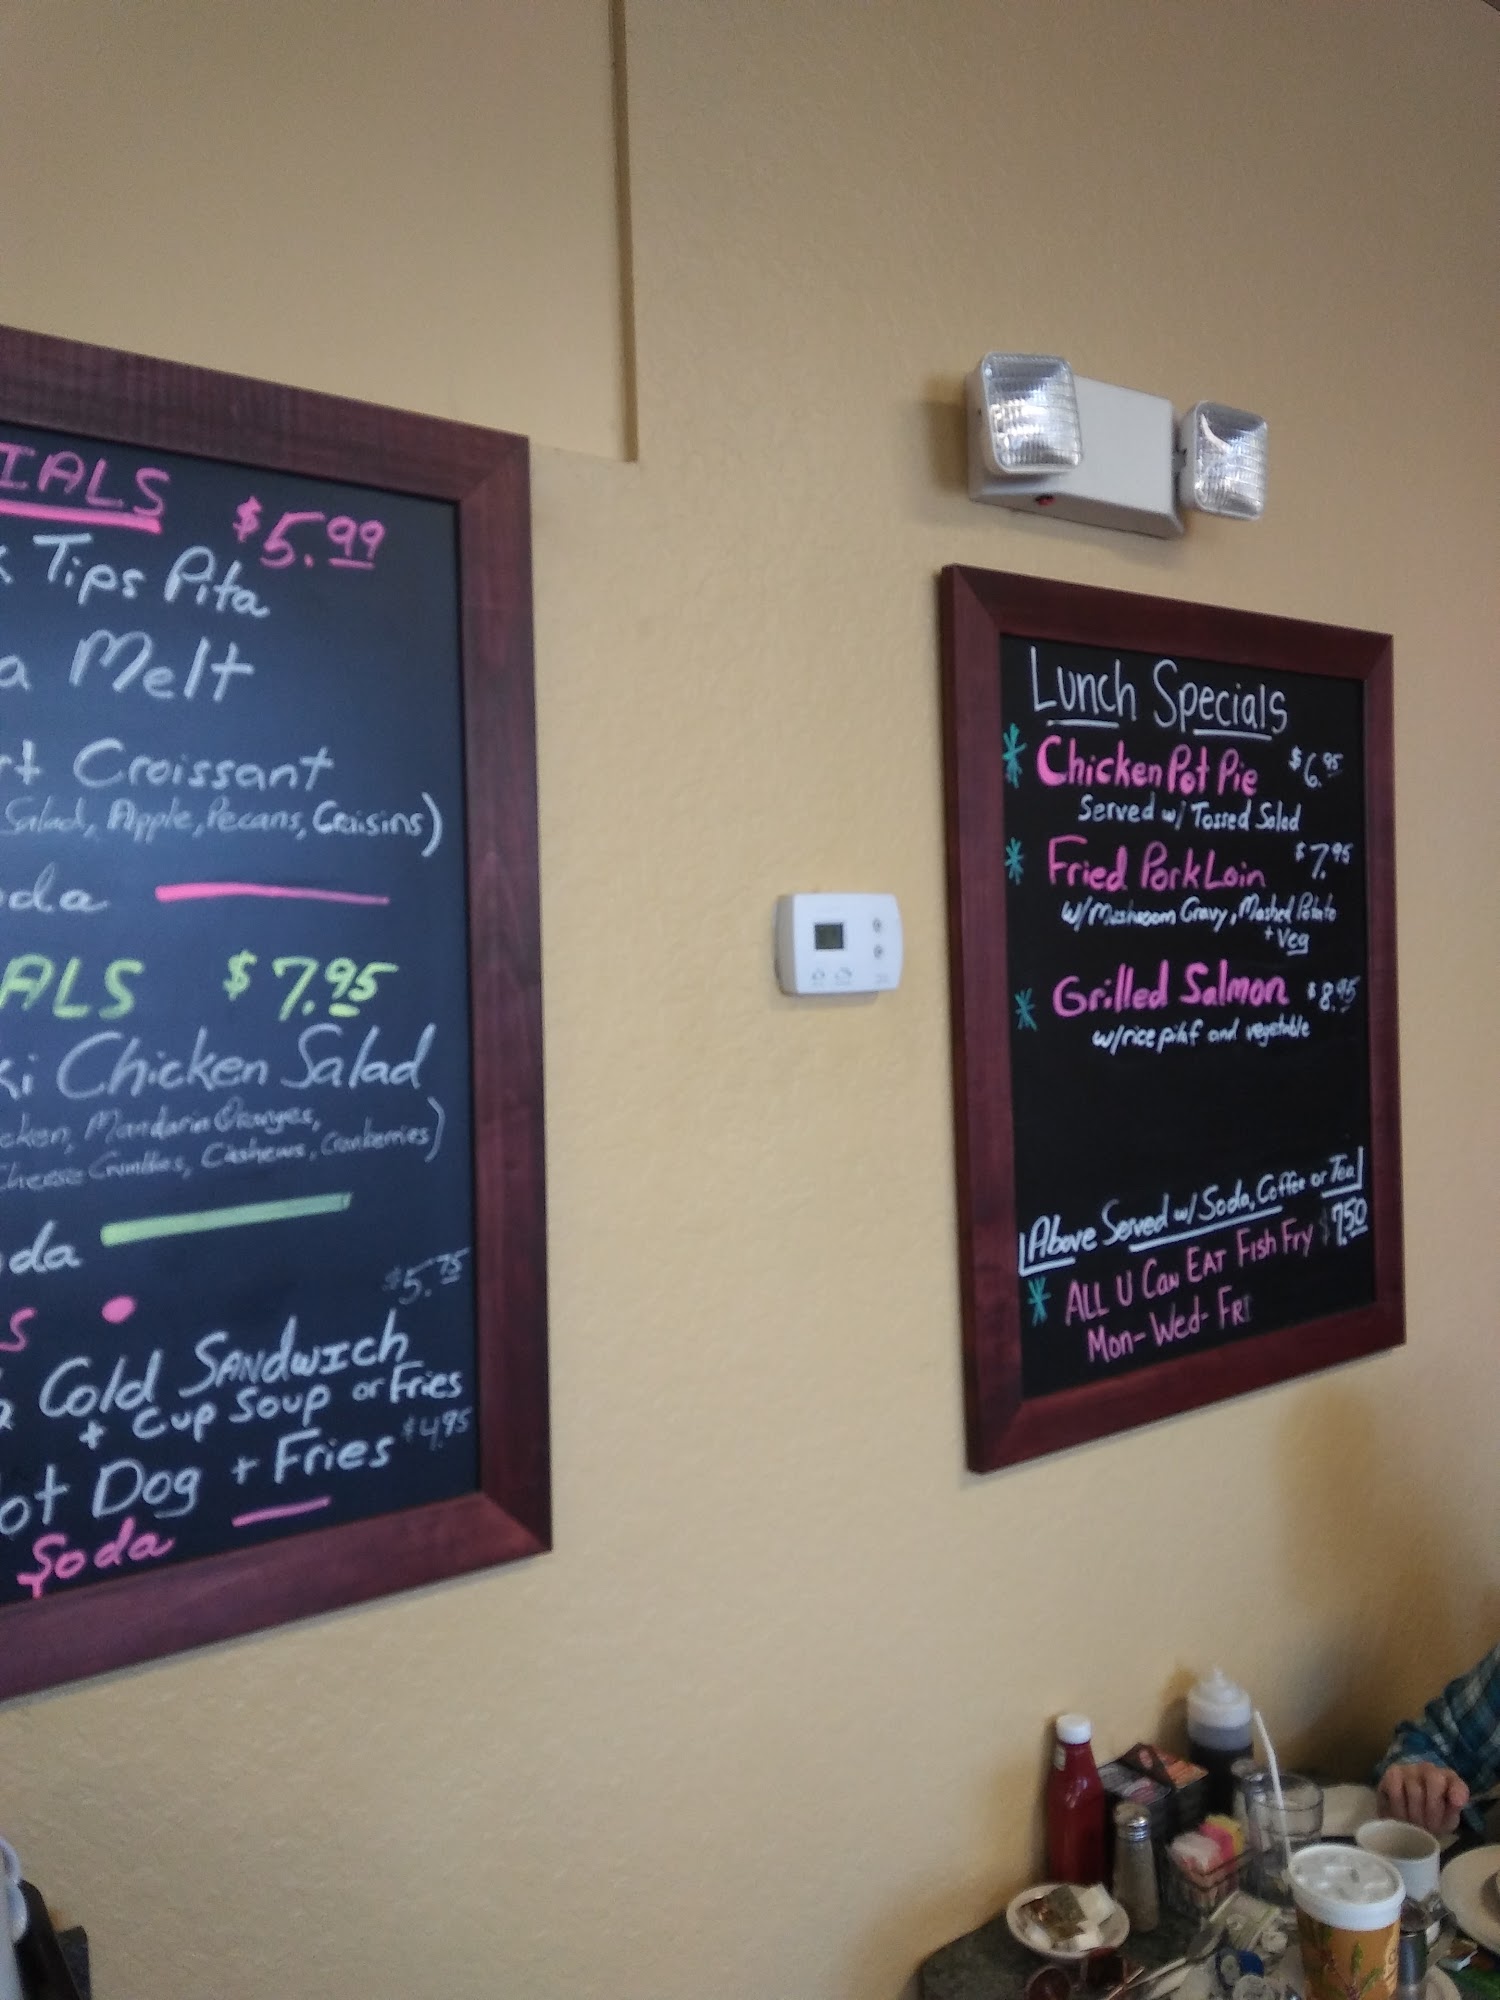 IALS $5.99
Tips Pita
a Melt
rt Croissant
Salad, Apple, Pecans, Craisins)
oda
ALS $7.95
ki Chicken Salad
cken, Mandarin Oranges,
Cheese Crumbles, Cashews, Cranberries)
da
$5.75
S
Cold SANDWICH
+ Cup Soup or Fries
ot Dog + Fries $4.95
Soda
Lunch Specials
Chicken Pot Pie $6.95
Served w/ Tossed Salad
Fried Pork Loin $7.95
w/Mushroom Gravy, Mashed Potato
+ Veg
Grilled Salmon $8.95
w/rice pilaf and vegetable
Above Served w/ Soda, Coffee or Tea
ALL U Can EAT Fish Fry $7.50
Mon- Wed- FRI